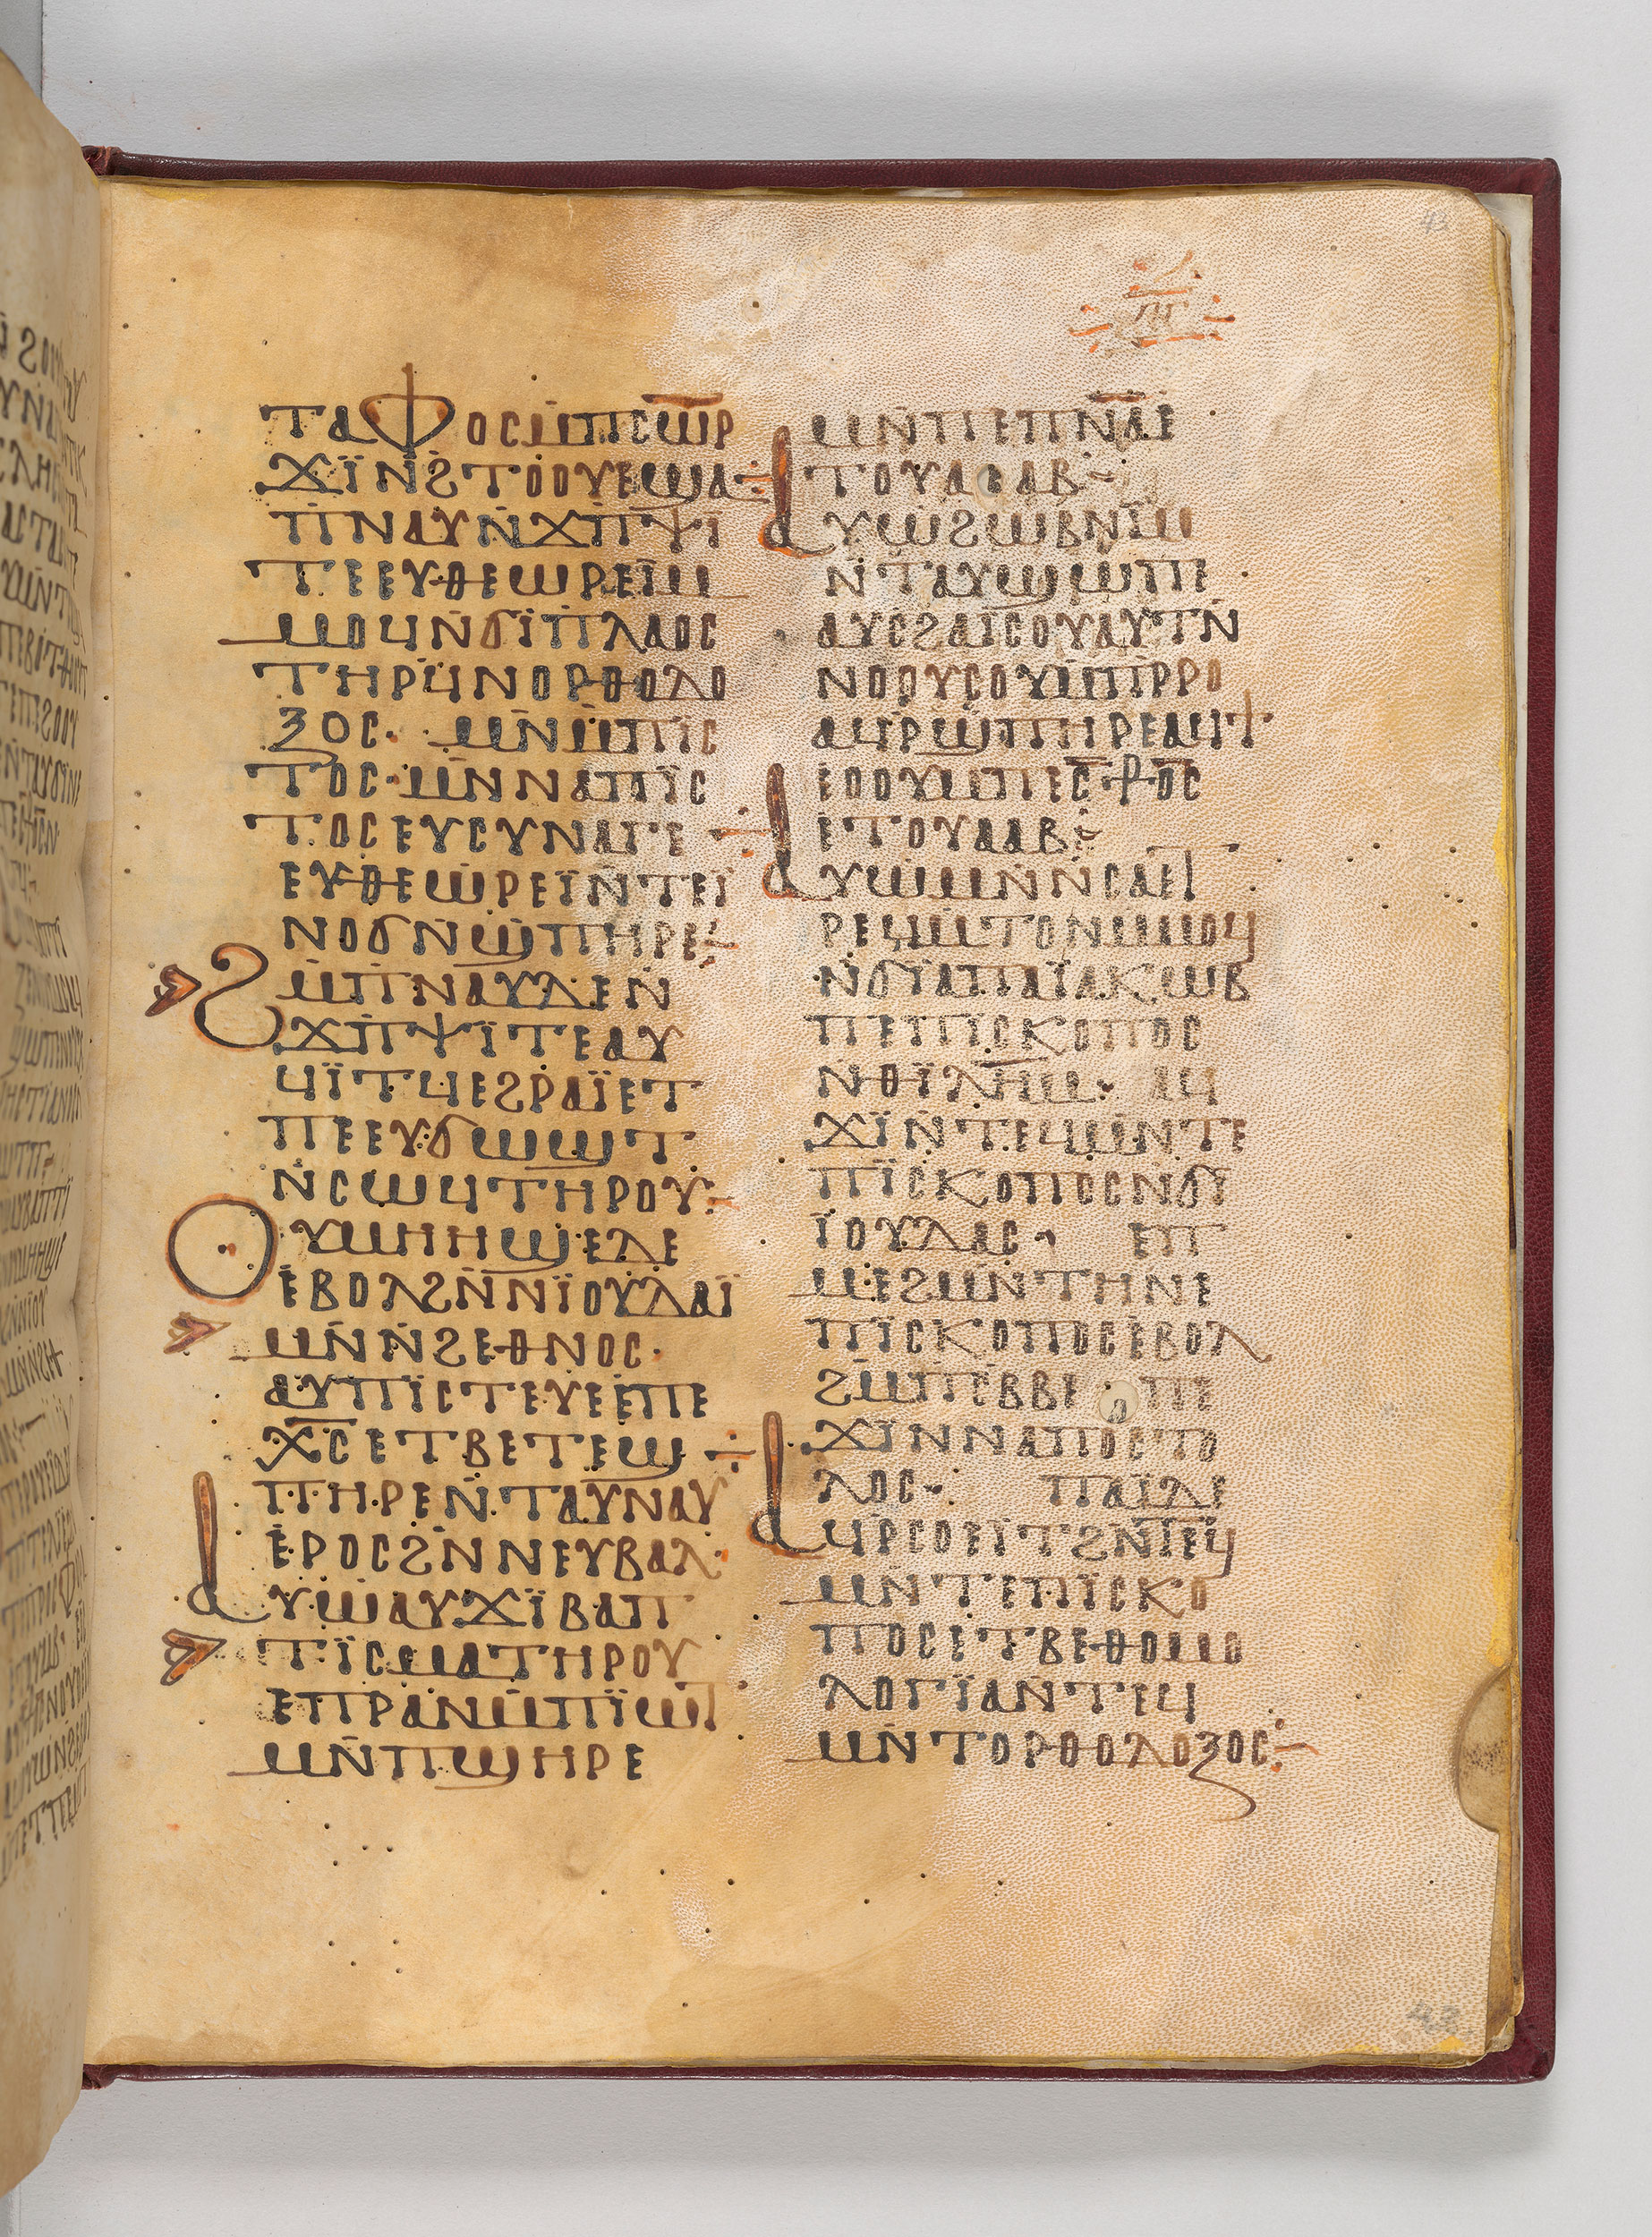 ⲧⲁⲫⲟⲥⲙ̄ⲡⲥⲱ̅ⲣ̅
ϫⲓ̈ⲛϩⲧⲟⲟⲩⲉϣⲁ
ⲡⲛⲁⲩⲛ̇ϫⲡ̄ⲯⲓ̈
ⲧⲉⲉⲩⲑⲉⲱⲣⲉⲓ̈ⲙ
ⲙⲟϥⲛ̇ϭⲓ̈ⲡ̇ⲗⲁⲟⲥ
ⲧⲏⲣϥ̇ⲛⲟⲣⲑⲟⲇⲟ
ⲝⲟⲥ· ⲙⲛ̇ⲙ̇ⲡⲓ̈ⲥ
ⲧⲟⲥ·ⲙⲛ̇ⲛⲁⲡⲓ̈ⲥ
ⲧⲟⲥⲉⲩⲥⲩⲛⲁⲅⲉ
ⲉⲩⲑⲉⲱⲣⲉⲓ̈ⲛ̇ⲧⲉⲓ̈
ⲛⲟϭⲛ̇ϣⲡⲏⲣⲉ⁘
ϩⲙ̇ⲡⲛⲁⲩⲇⲉⲛ
ϫⲡ̇ⲯⲓ̈ⲧⲉⲁⲩ
ϥⲓ̈ⲧϥⲉϩⲣⲁⲓ̈ⲉⲧ
ⲡⲉⲉⲩϭⲱϣⲧ
ⲛ̇ⲥⲱϥⲧⲏⲣⲟⲩ⁘
ⲟⲩⲙⲏⲏϣⲉⲇⲉ
ⲉ̇ⲃⲟⲗϩⲛ̇ⲛⲓ̈ⲟⲩⲇⲁⲓ̈
ⲙⲛ̇ⲛ̇ϩⲉⲑⲛⲟⲥ·
ⲁⲩⲡⲓ̈ⲥⲧⲉⲩⲉⲉ̇ⲡⲉ
ⲭ̅ⲥ̅ⲉⲧⲃⲉⲧⲉϣ
ⲡⲏⲣⲉⲛ̇ⲧⲁⲩⲛⲁⲩ
ⲉ̇ⲣⲟⲥϩⲛ̇ⲛⲉⲩⲃⲁⲗ·
ⲁⲩⲱⲁⲩϫⲓ̈ⲃⲁⲡ
ⲧⲓ̈ⲥⲙⲁⲧⲏⲣⲟⲩ
ⲉⲡⲣⲁⲛⲙ̇ⲡⲓ̈ⲱⲧ
ⲙⲛ̇ⲡϣⲏⲣⲉ
ⲡ̅ⲅ̅
ⲙⲛ̇ⲡⲉⲡ̅ⲛ̅ⲁ̅ⲉ
ⲧⲟⲩⲁⲁⲃ⁓
ⲁⲩⲱϩⲱⲃⲛⲓ̈ⲙ
ⲛ̇ⲧⲁⲩϣⲱⲡⲉ
ⲁⲩⲥϩⲁⲓ̈ⲥⲟⲩⲁⲩⲧⲛ̇
ⲛⲟⲟⲩⲥⲟⲩⲙ̇ⲡⲣ̇ⲣⲟ
ⲁϥⲣ̇ϣⲡⲏⲣⲉⲁϥϯ
ⲉⲟⲟⲩⲙ̇ⲡⲉⲥ̅⳨ⲟ̅ⲥ̅
ⲉⲧⲟⲩⲁⲁⲃ⁘
ⲁⲩⲱⲙⲛ̇ⲛ̇ⲥⲁⲉⲓ
ⲣⲉϥⲙ̇ⲧⲟⲛⲙ̇ⲙⲟϥ
ⲛ̇ϭⲓ̈ⲁⲡⲁⲓ̈ⲁⲕⲱⲃ
ⲡⲉⲡⲓ̈ⲥⲕⲟⲡⲟⲥ
ⲛ̇ⲑⲓ̈ⲗ̅ⲏ̅ⲙ̅· ⲁϥ
ϫⲓ̈ⲛ̇ⲧⲉϥⲙⲛ̇ⲧⲉ
ⲡⲓ̈ⲥⲕⲟⲡⲟⲥⲛ̇ϭⲓ̈
ⲓ̈ⲟⲩⲇⲁⲥ· ⲉⲡ
ⲙⲉϩⲙⲛ̇ⲧⲏⲛⲉ
ⲡⲓ̈ⲥⲕⲟⲡⲟⲥⲉ̇ⲃⲟⲗ
ϩⲙ̇ⲡⲥ̇ⲃⲃⲉ ⲡⲉ
ϫⲓ̈ⲛⲛⲁⲡⲟⲥⲧⲟ
ⲗⲟⲥ· ⲡⲁⲓ̈ⲇⲉ
ⲁϥⲣ̇ⲥⲟⲉⲓ̈ⲧϩⲛ̇ⲧⲉϥ
ⲙⲛ̇ⲧⲉⲡⲓ̈ⲥⲕⲟ
ⲡⲟⲥⲉⲧⲃⲉⲑⲟⲙⲟ
ⲗⲟⲅⲓ̈ⲁⲛ̇ⲧⲉϥ
ⲙⲛ̇ⲧⲟⲣⲑⲟⲇⲟⲝⲟⲥ⁘